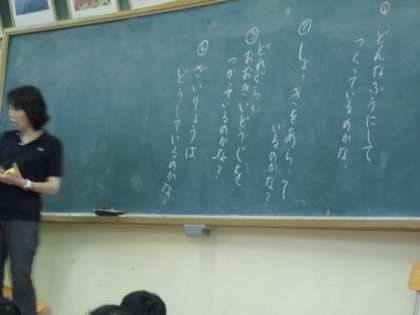 ①
どんなふうにして
つくっているのかな。
②
しょっきをあらって
いるのかな？
③
どれぐらい
おおきいどうぐを
つかっているのかな？
④
ざいりょうは
どうしているのかな？